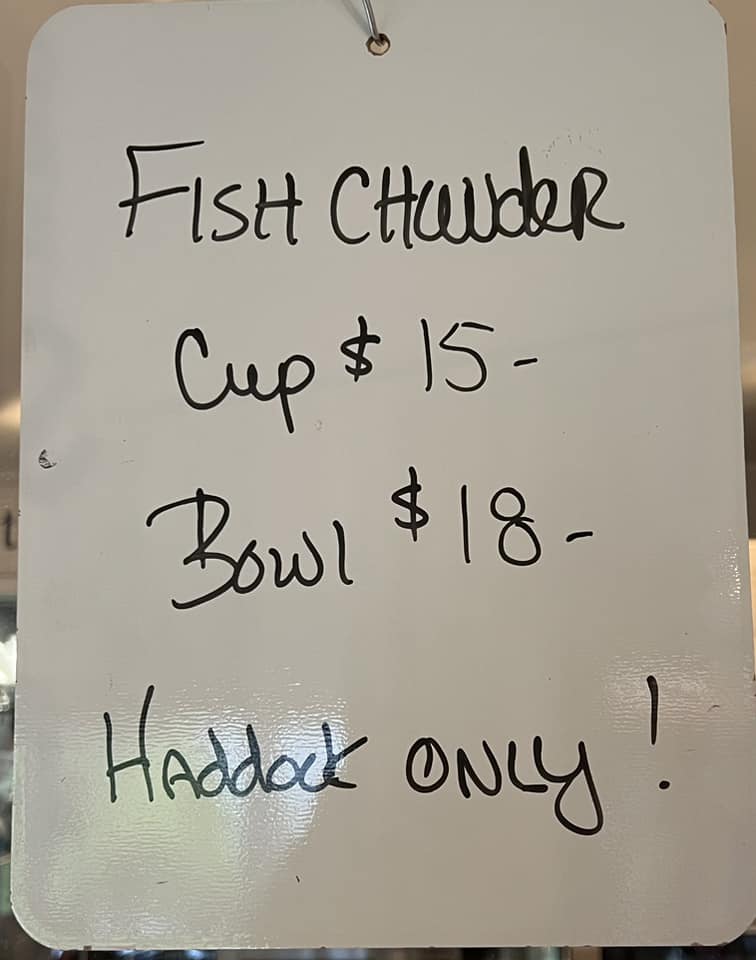 FISH CHOWDER
Cup $ 15-
Bowl $ 18-
HAddock ONLY!